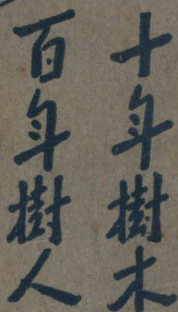 十年樹木
百年樹人